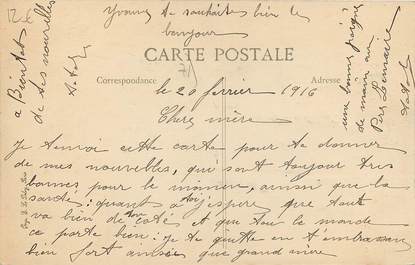 Yvonne te souhaites bien le
bonjour
CARTE POSTALE
Correspondance
Adresse
a Bientot
de tes nouvelles
une bonne poignée
de main au
Père Lemaire
le 20 fevrier 1916
Chere mère
Je t'envoi cette carte pour te donner
de mes nouvelles, qui sont toujour tres
bonnes pour le moment, ainsi que la
santé: quant a toi j'espere que tout
va bien de ton coté et que tout le monde
ce porte bien: je te quitte en t'embrassan
bien fort ainsi que grand mere